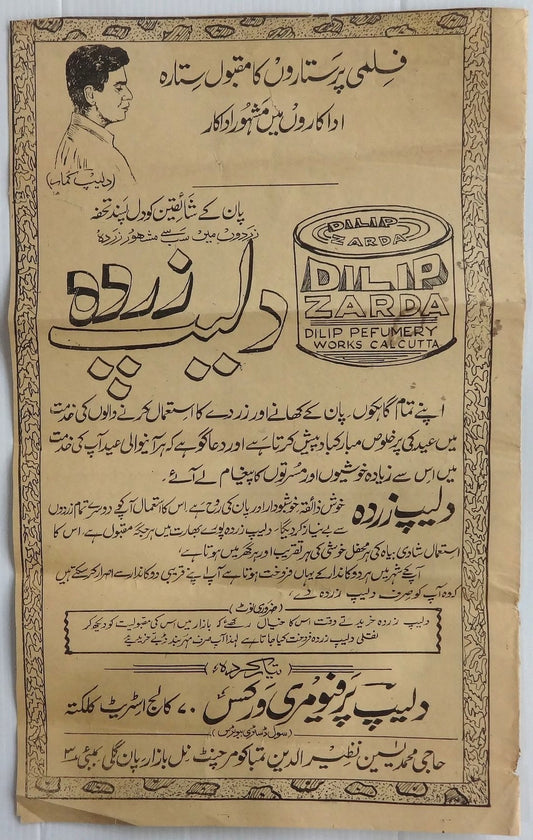 فلمی پرستاروں کا مقبول ستارہ
اداکاروں میں مشہور اداکار
(دلیپ کمار)
پان کے شائقین کو دل پسند تحفہ
زردوں میں سب سے مشہور زردہ
دلیپ زردہ
DILIP
ZARDA
DILIP
ZARDA
DILIP PEFUMERY
WORKS CALCUTTA
اپنے تمام گاہکوں۔ پان کے کھانے اور زردے کا استعمال کرنے والوں کی خدمت
میں عید کی پرخلوص مبارکباد پیش کرتا ہے اور دعا گو ہے کہ ہر آنیوالی عید آپ کی خدمت
میں اس سے زیادہ خوشیوں اور مسرتوں کا پیغام لے آئے۔
دلیپ زردہ خوش ذائقہ خوشبودار اور پان کی روح ہے۔ اس کا استعمال آپکو دوسرے تمام زردوں
سے بے نیاز کردیگا۔ دلیپ زردہ پورے بھارت میں ہر جگہ مقبول ہے۔ اس کا
استعمال شادی بیاہ کی ہر محفل خوشی کی ہر تقریب اور ہر گھر میں ہوتا ہے،
آپکے شہر میں ہر دوکاندار کے یہاں فروخت ہوتا ہے آپ اپنے قریبی دوکاندار سے اصرار کرسکتے ہیں
کہ وہ آپ کو صرف دلیپ زردہ دے،
(ضروری نوٹ)
دلیپ زردہ خریدتے وقت اس کا خیال رکھئے کہ بازار میں اس کی مقبولیت کو دیکھ کر
نقلی دلیپ زردہ فروخت کیا جاتا ہے لہذا آپ صرف مہر بند ڈبے خریدیئے
تیار کردہ
دلیپ پرفیومری ورکس ۷۰ کالج اسٹریٹ کلکتہ
(سول ڈسٹری بیوٹرس)
حاجی محمد یٰسین نظیر الدین تمباکو مرچنٹ نل بازار پان گلی بمبئی ۳